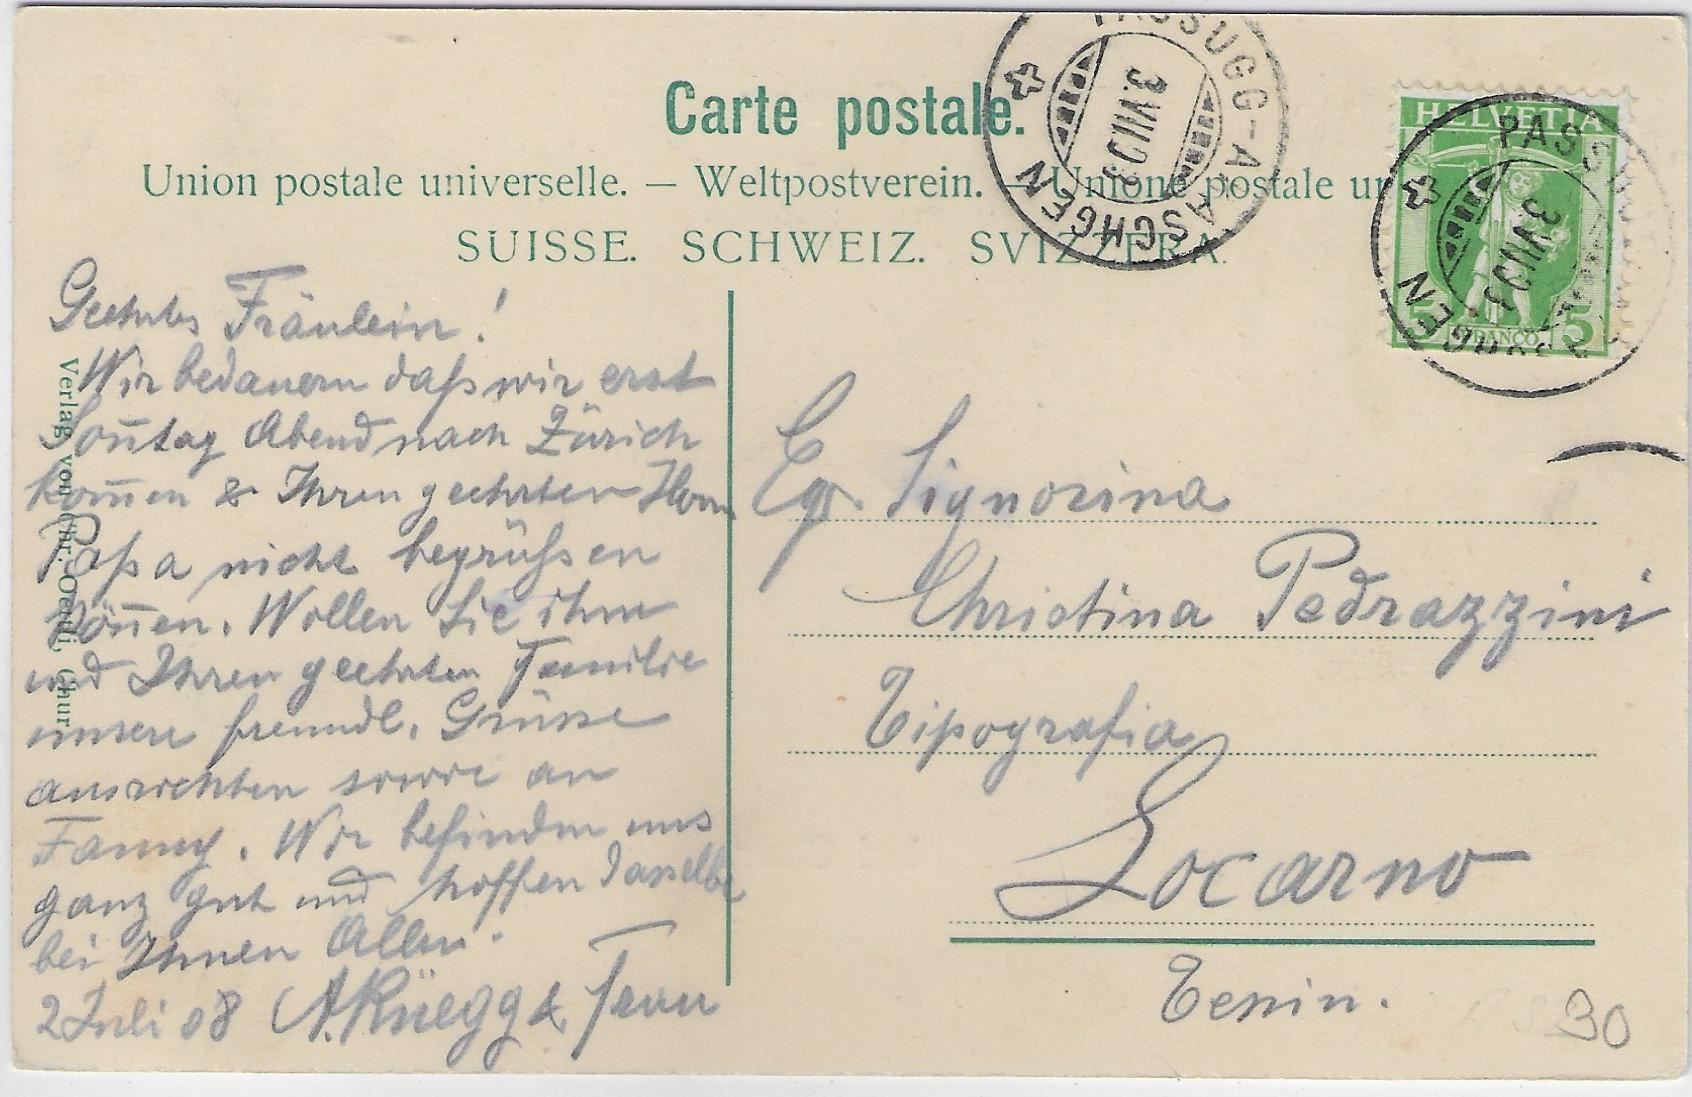 Carte postale.
Union postale universelle. — Weltpostverein. — Unione postale un
SUISSE. SCHWEIZ. SVIZZERA.
PASSUGG-ARASCHGEN
3.VII.08
HELVETIA
5 FRANCO 5
PASS
3.VII.08
GEN
Geehrtes Fräulein!
Wir bedauern daß wir erst
Soñtag Abend nach Zürich
komen & Ihren geehrten Herrn
Papa nicht begrüßen
köñen. Wollen Sie ihm
und Ihren geehrten Familie
unsere freundl. Grüsse
ausrichten sowie an
Fanny. Wir befinden uns
ganz gut und hoffen dasselbe
bei Ihnen Allen.
2 Juli 08 A. Rüegg & Frau
Verlag von Chr. Oetli, Chur
Eg. Signorina
Christina Pedrazzini
Tipografia
Locarno
Tessin.
30